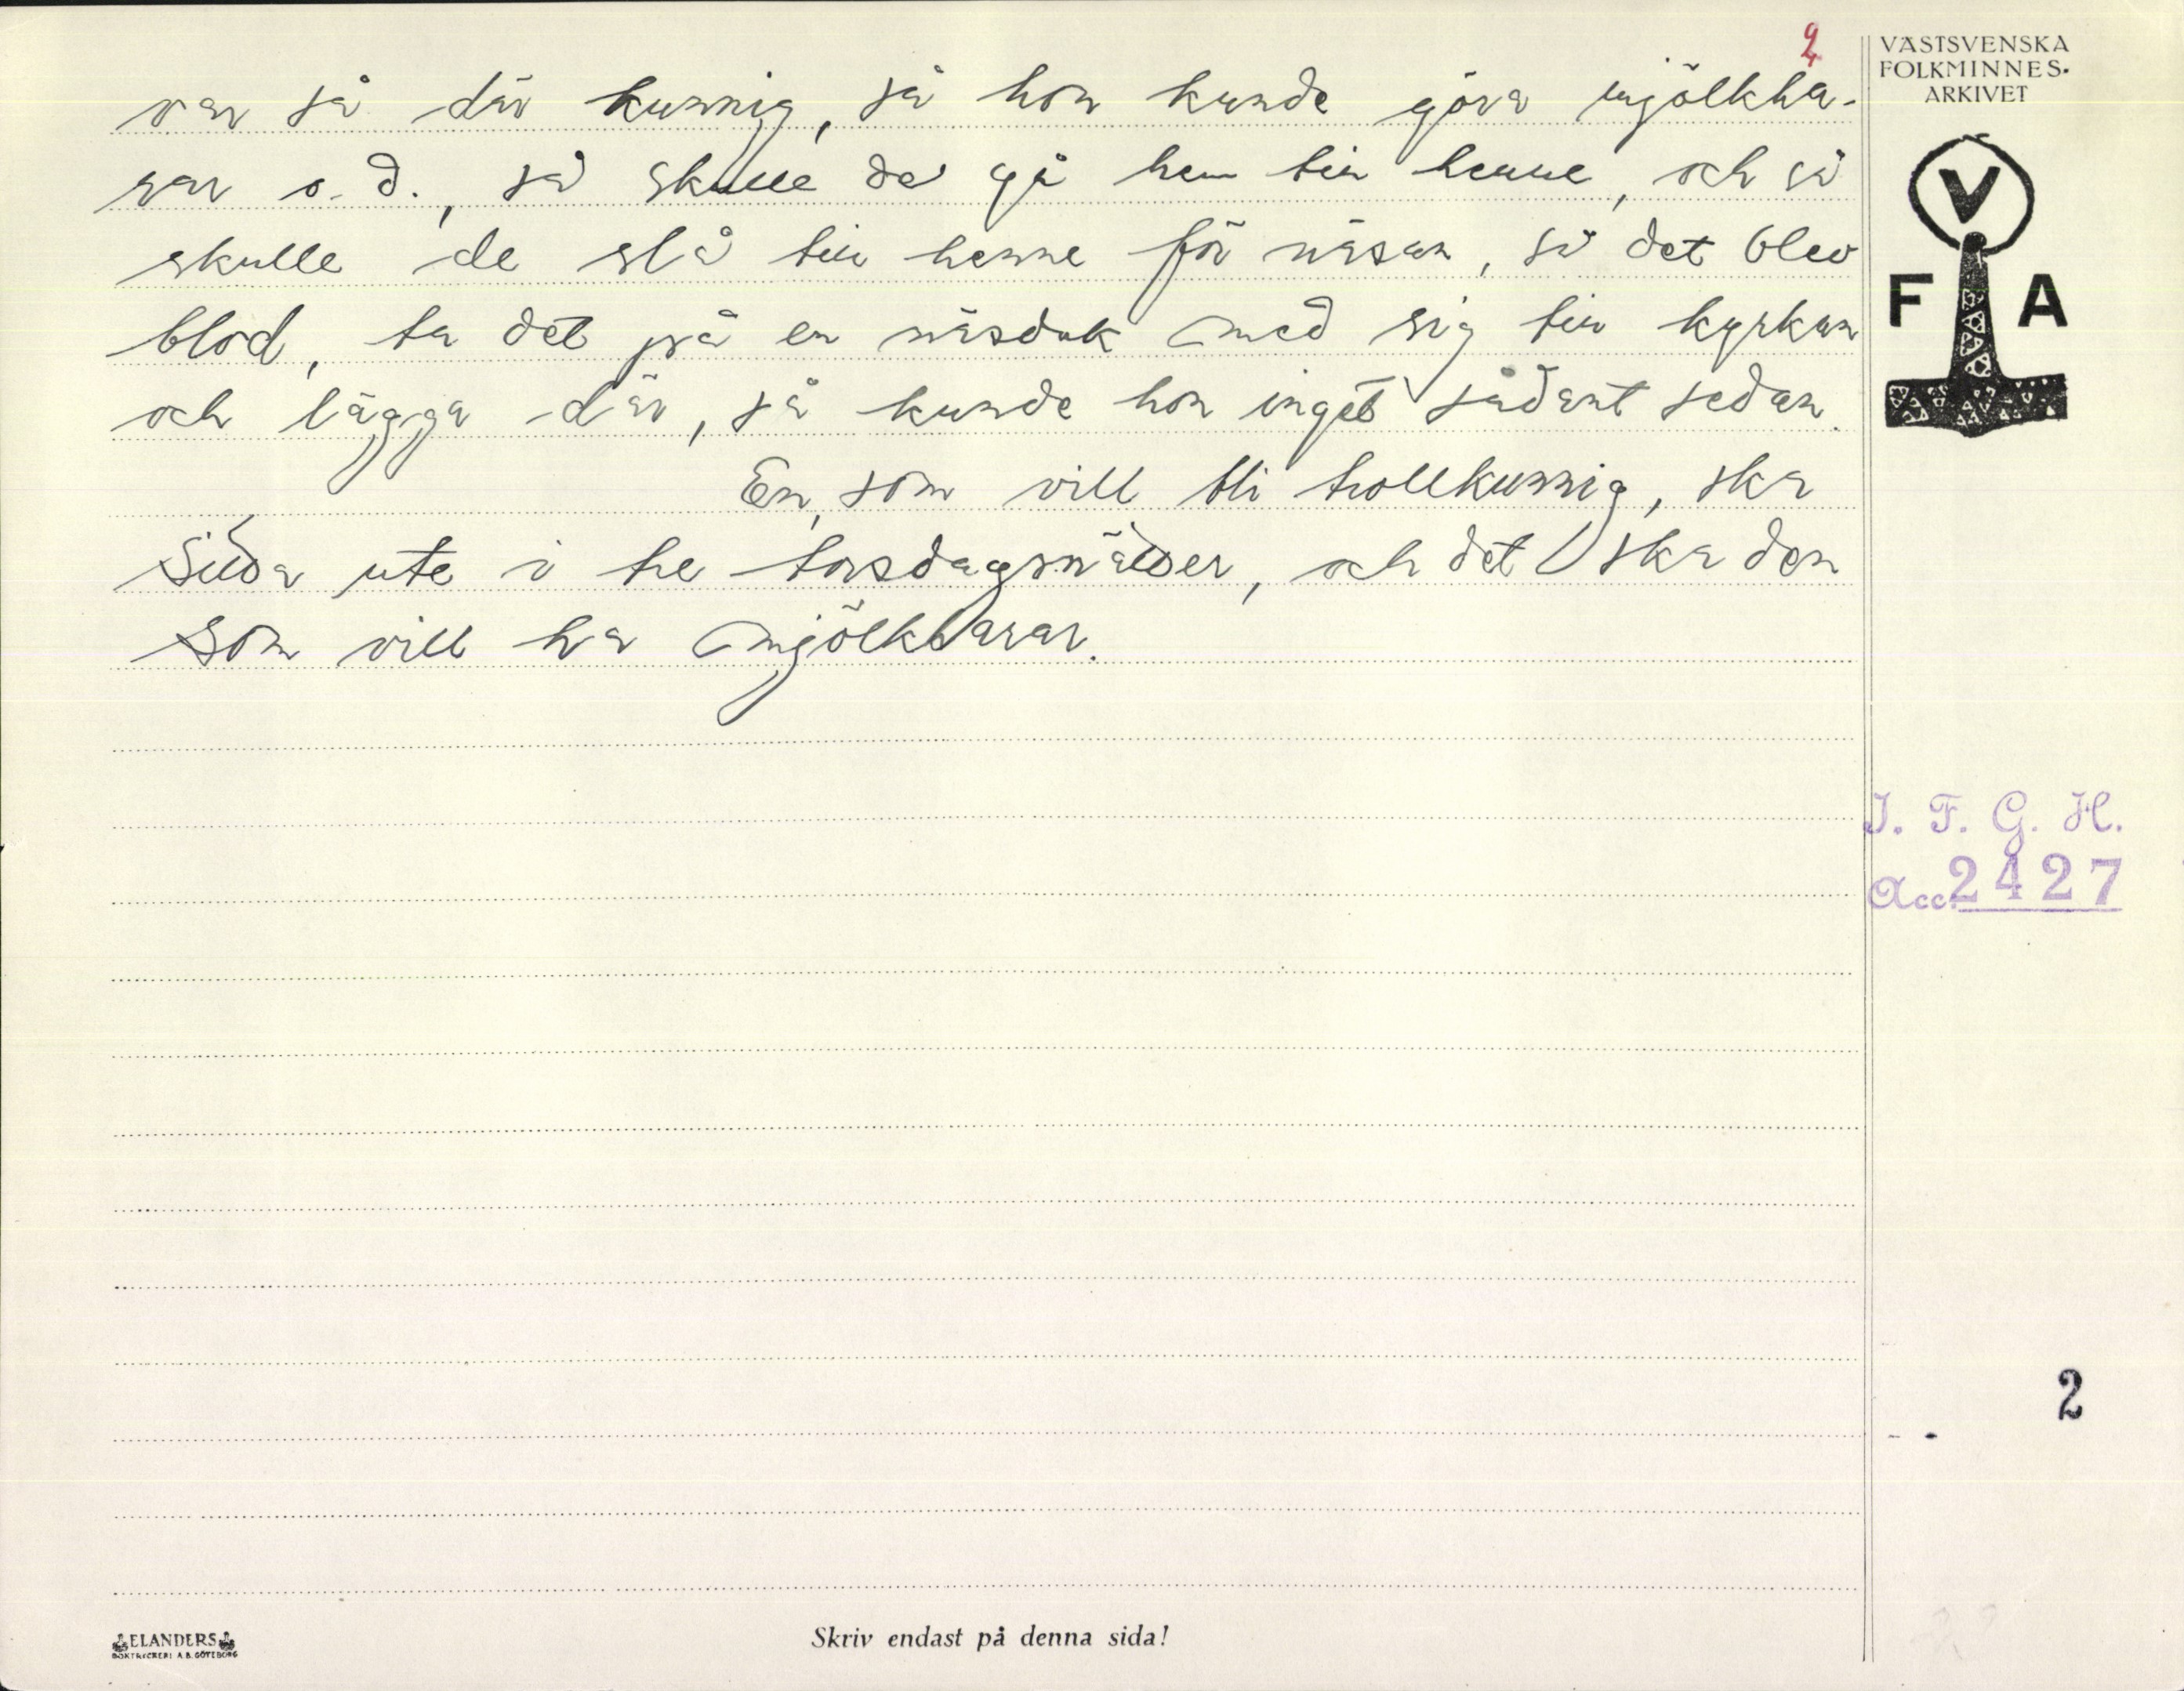 2
var så där kunnig, så hon kunde göra mjölkha-
rar o. d., så skulle de gå hem till henne, och så
skulle de slå till henne för näsan, så det blev
blod, ta det på en näsduk med sig till kyrkan
och lägga där, så kunde hon inget sådant sedan.
En, som vill bli trollkunnig, ska
sitta ute i tre torsdagsnätter, och det ska den
som vill ha mjölkharar.
VÄSTSVENSKA
FOLKMINNES-
ARKIVET
V
F A
I. F. G. H.
Acc. 2427
2
ELANDERS
BOKTRYCKERI A.B. GÖTEBORG
Skriv endast på denna sida!